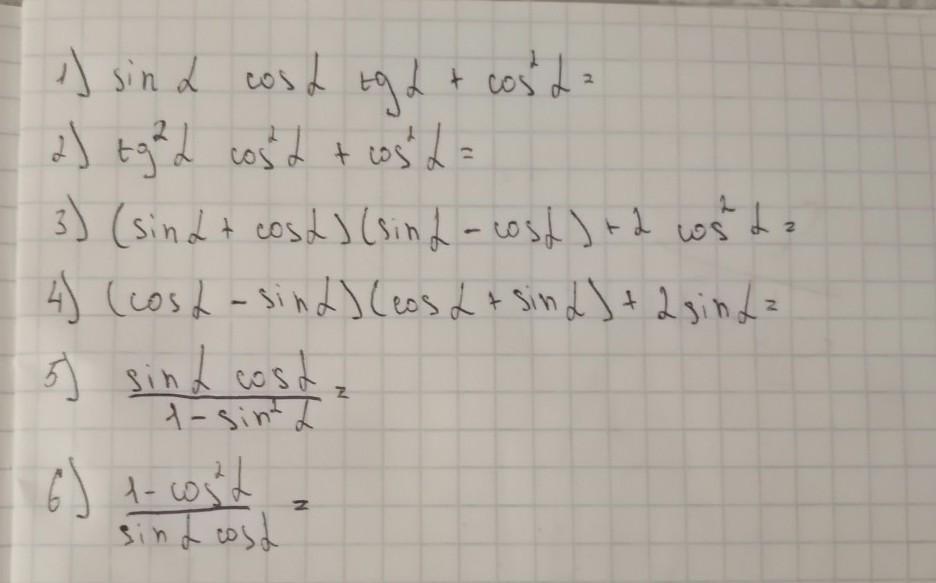 1) sin α cos α tg α + cos² α =
2) tg² α cos² α + cos² α =
3) (sin α + cos α)(sin α - cos α) + 2 cos² α =
4) (cos α - sin α)(cos α + sin α) + 2 sin α =
5) sin α cos α / 1 - sin² α =
6) 1 - cos² α / sin α cos α =